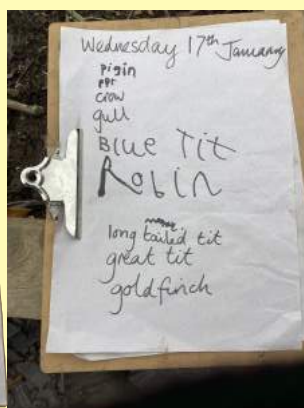 Wednesday 17th January
pigin
crow
gull
Blue Tit
Robin
long tailed tit
great tit
goldfinch